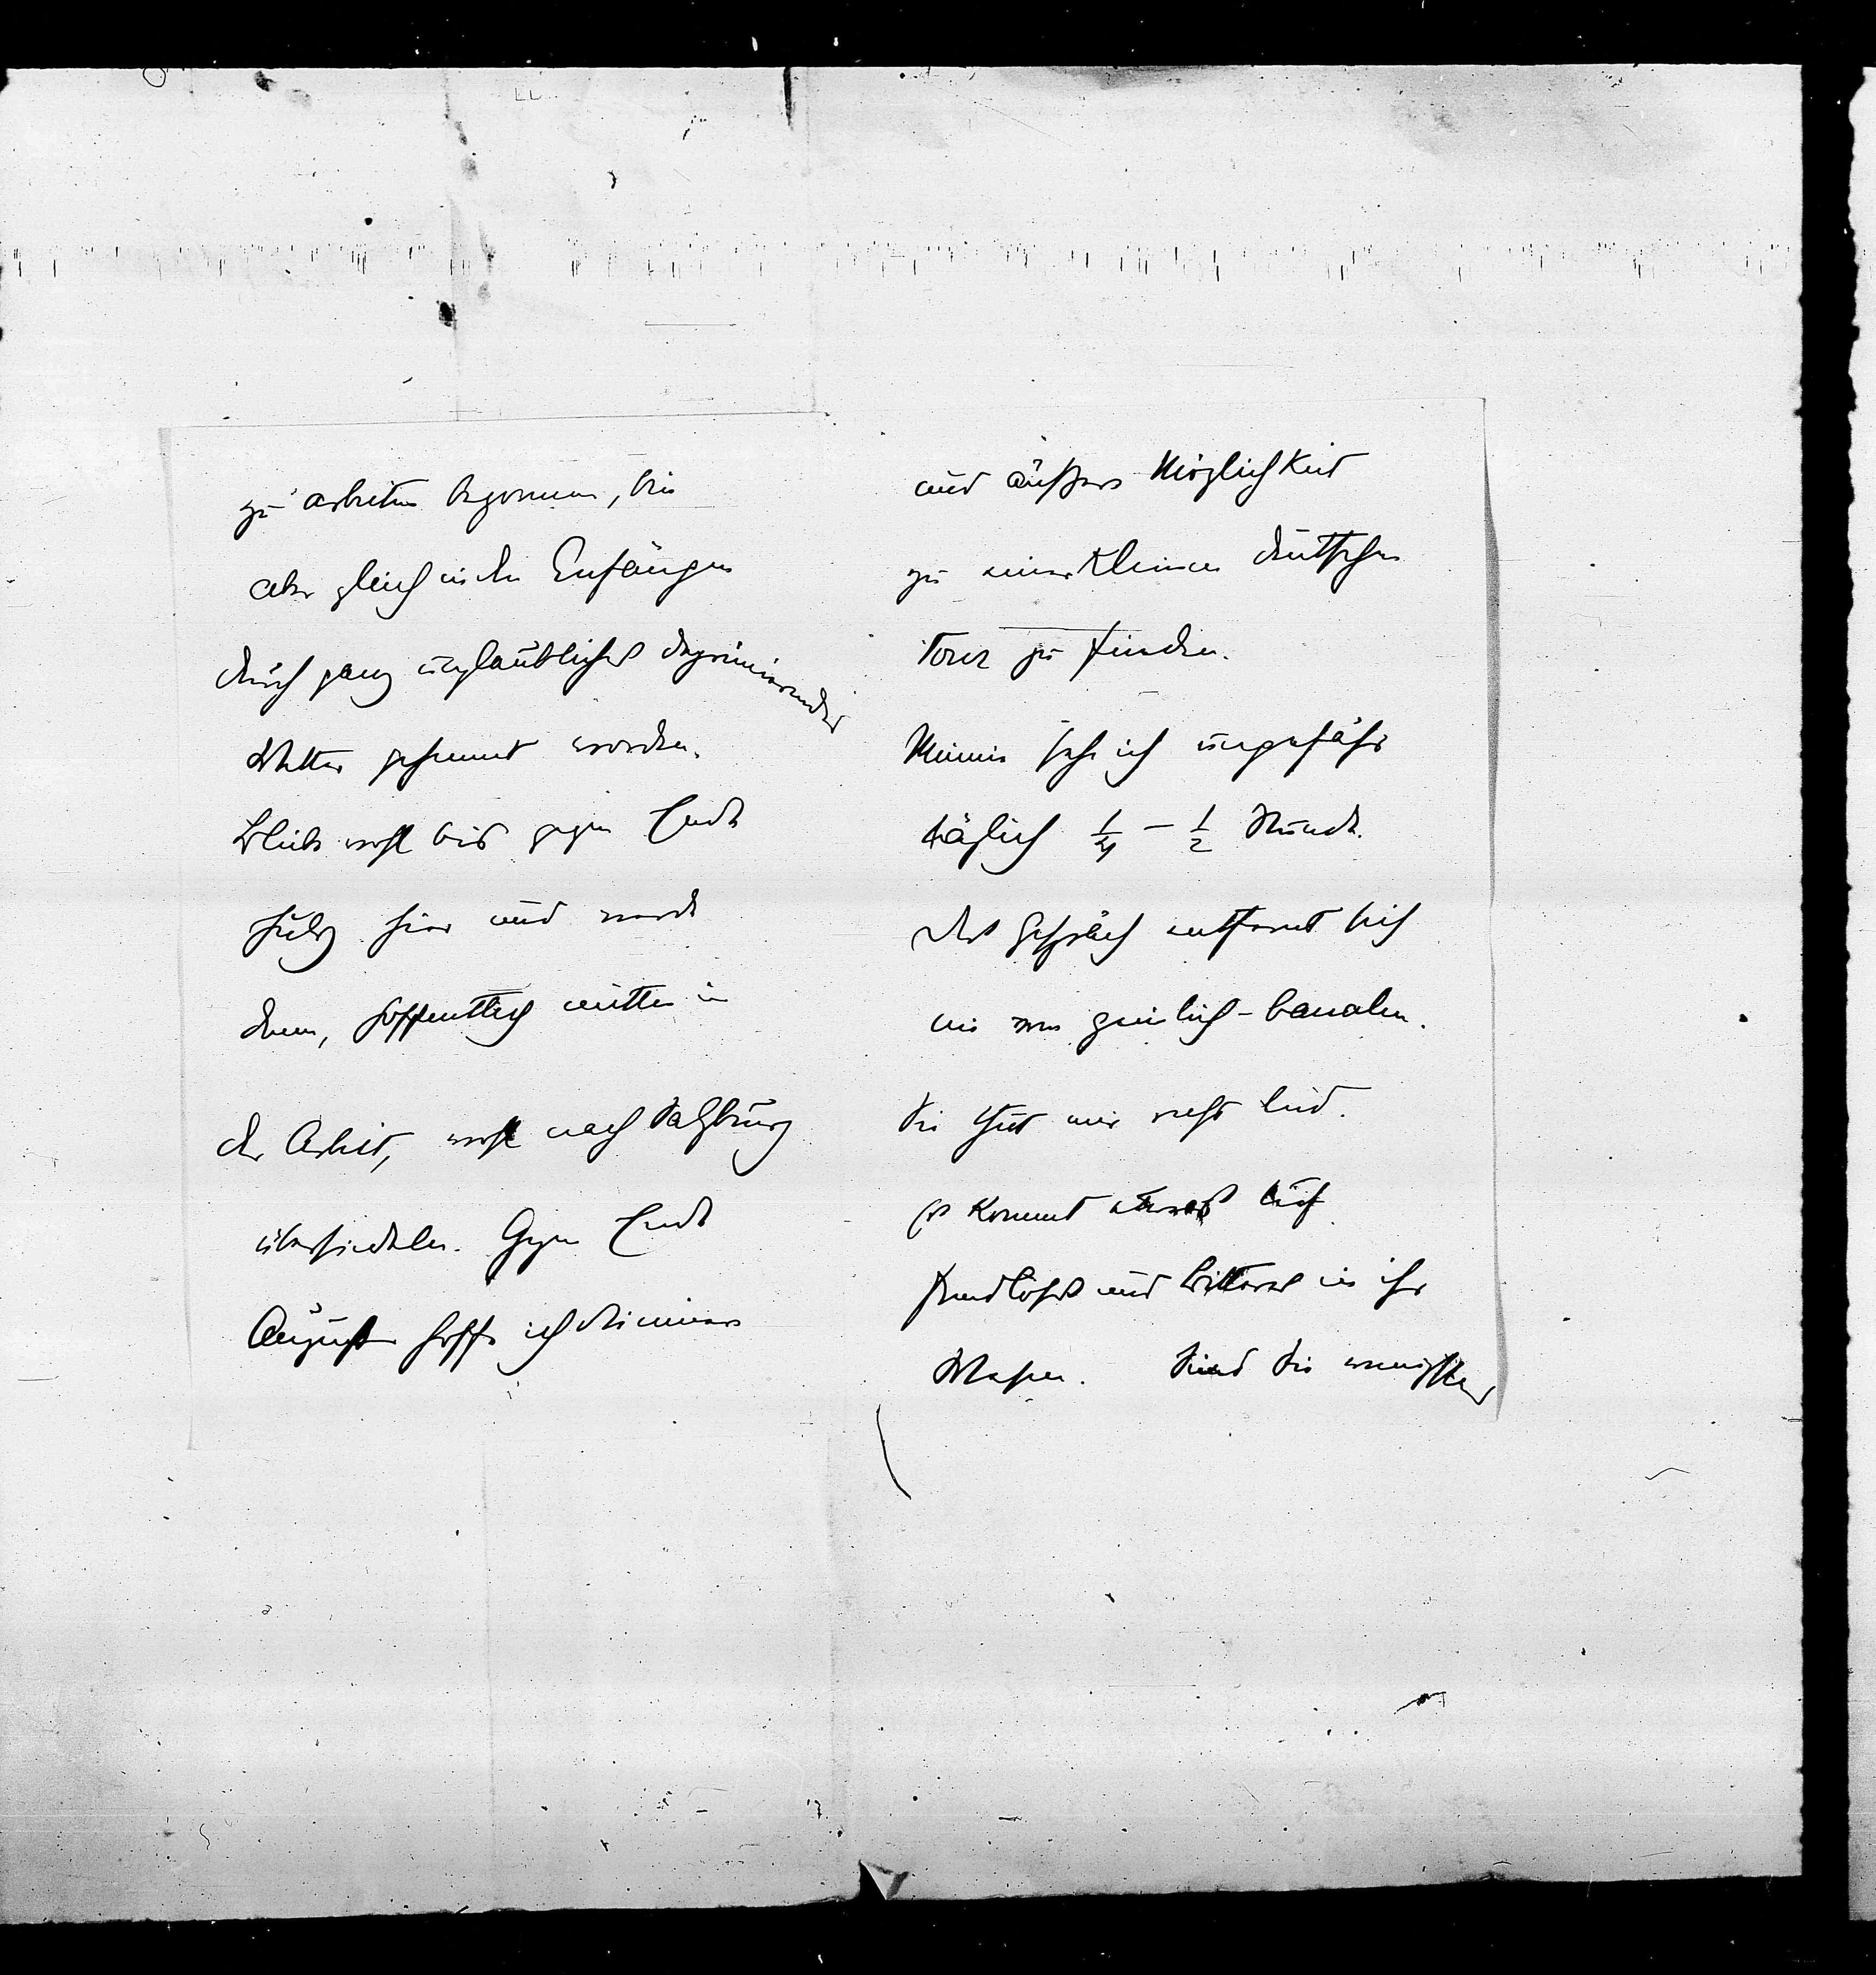 zu arbeiten begonnen, bin
aber gleich in den Anfängen
durch ganz unglaublich deprimierendes
Wetter gehemmt worden.
Bleibe wohl bis gegen Ende
July hier und werde
dann, hoffentlich mitten in
der Arbeit, wohl nach Salzburg
übersiedeln. Gegen Ende
August hoffe ich die innere
und äußere Möglichkeit
zu einer kleinen deutschen
Tour zu finden.
Minnie sehe ich ungefähr
täglich ¼ – ½ Stunde.
Das Gespräch entfernt sich
nie vom peinlich-banalen.
Sie thut mir recht leid.
Es kommt etwas
Freudloses und bitteres in ihr
Wesen. Sind Sie wenigstens